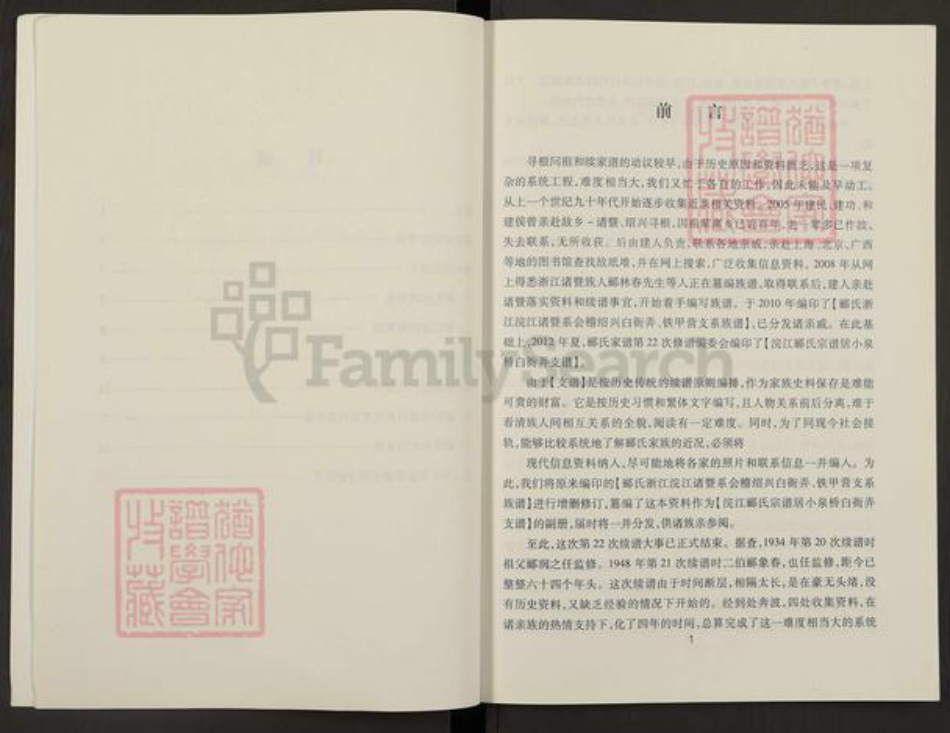 前 言
寻根问祖和续家谱的动议较早,由于历史原因和资料匮乏,这是一项复
杂的系统工程,难度相当大,我们又忙于各自的工作,因此未能及早动工。
从上一个世纪九十年代开始逐步收集近亲相关资料。2005年建民、建功、和
建侯曾亲赴故乡-诸暨、绍兴寻根,因祖辈离乡已近百年,老一辈多已作故、
失去联系,无所收获。后由建人负责,联系各地亲戚,亲赴上海、北京、广西
等地的图书馆查找故纸堆,并在网上搜索,广泛收集信息资料。2008年从网
上得悉浙江诸暨族人郦林春先生等人正在纂编族谱,取得联系后,建人亲赴
诸暨落实资料和续谱事宜,开始着手编写族谱。于2010年编印了【郦氏浙
江浣江诸暨系会稽绍兴白衙弄、铁甲营支系族谱】,已分发诸亲戚。在此基
础上,2012年夏,郦氏家谱第22次修谱编委会编印了【浣江郦氏宗谱居小泉
桥白衙弄支谱】。
由于【支谱】是按历史传统的续谱原则编排,作为家族史料保存是难能
可贵的财富。它是按历史习惯和繁体文字编写,且人物关系前后分离,难于
看清族人间相互关系的全貌,阅读有一定难度。同时,为了同现今社会接
轨,能够比较系统地了解郦氏家族的近况,必须将
现代信息资料纳入,尽可能地将各家的照片和联系信息一并编入。为
此,我们将原来编印的【郦氏浙江浣江诸暨系会稽绍兴白衙弄、铁甲营支系
族谱】进行增删修订,纂编了这本资料作为【浣江郦氏宗谱居小泉桥白衙弄
支谱】的副册,届时将一并分发,供诸族亲参阅。
至此,这次第22次续谱大事已正式结束。据查,1934年第20次续谱时
祖父郦润之任监修。1948年第21次续谱时二伯郦象春,也任监修,距今已
整整六十四个年头。这次续谱由于时间断层,相隔太长,是在豪无头绪,没
有历史资料,又缺乏经验的情况下开始的。经到处奔波,四处收集资料,在
诸亲族的热情支持下,化了四年的时间,总算完成了这一难度相当大的系统
1
FamilySearch